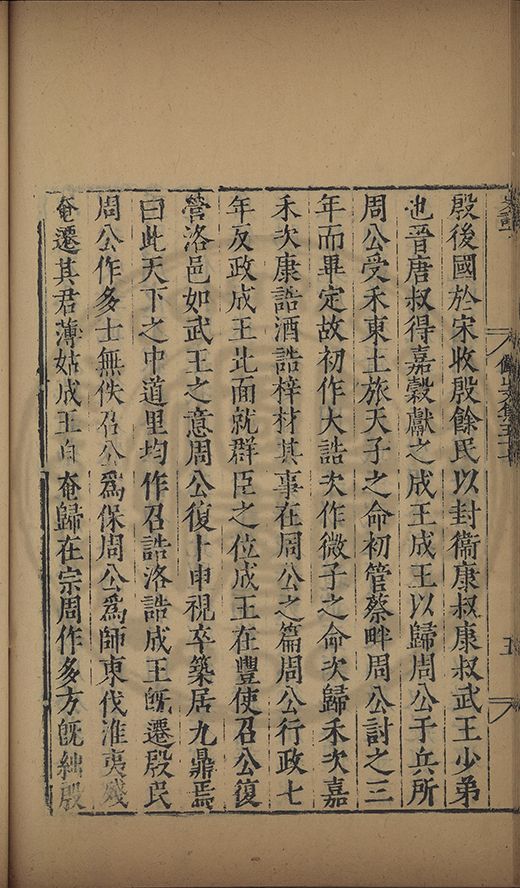 五
殷後國於宋收殷餘民以封衞康叔康叔武王少弟
也晉唐叔得嘉穀獻之成王成王以歸周公于兵所
周公受禾東土旅天子之命初管蔡畔周公討之三
年而畢定故初作大誥次作微子之命次歸禾次嘉
禾次康誥酒誥梓材其事在周公之篇周公行政七
年反政成王北面就群臣之位成王在豐使召公復
營洛邑如武王之意周公復卜申視卒築居九鼎焉
曰此天下之中道里均作召誥洛誥成王旣遷殷民
周公作多士無佚召公爲保周公爲師東伐淮夷殘
奄遷其君薄姑成王自奄歸在宗周作多方旣絀殷